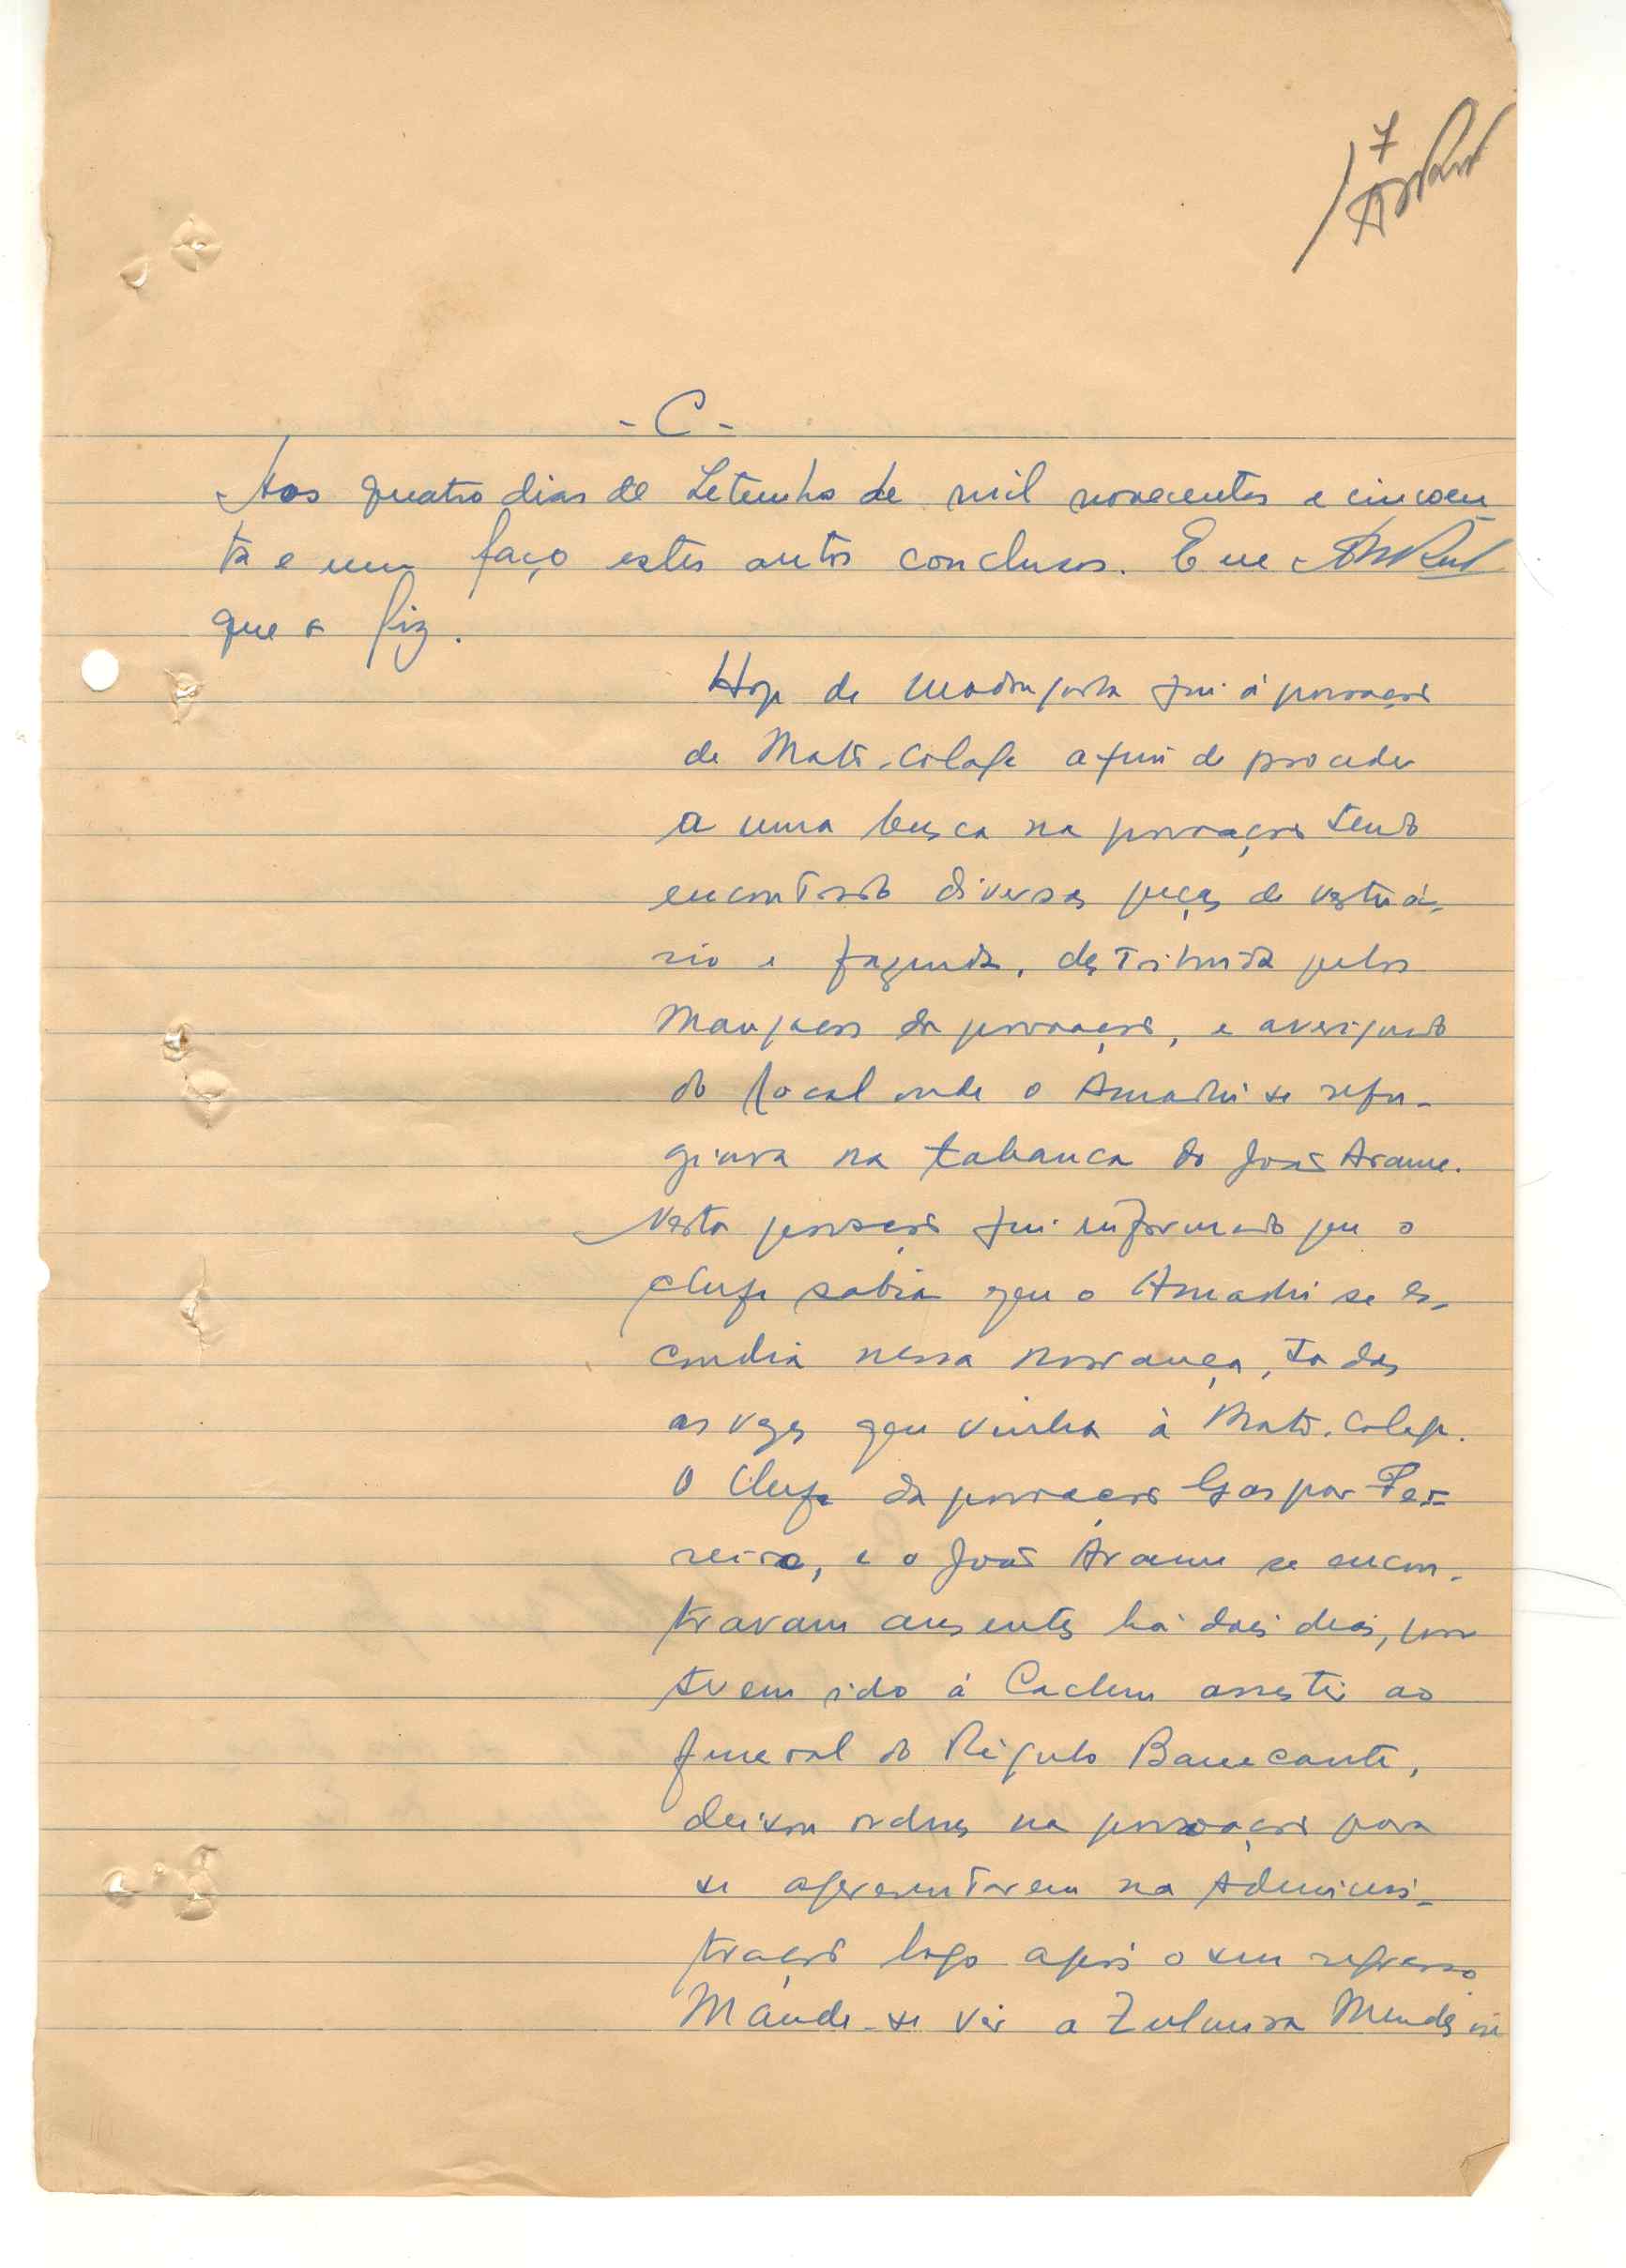 7
- C -
Aos quatro dias de Setembro de mil novecentos e cincoen
ta e um faço estes autos conclusos. E eu
que o fiz.
Hoje de madrugada fui á povoação
de Mato-Colage afim de proceder
a uma busca na povoação tendo
encontrado diversas peças de vestuá-
rio e fazenda, destribuida pelos
Manjacos da povoação, e averiguado
do local onde o Amadú se refu-
giava na tabanca do João Arame.
Nesta povoação fui informado que o
chefe sabia que o Amadú se es-
condia nessa morança, todas
as vezes que vinha à Mato-Colage.
O Chefe da povoação Gaspar Fer-
reira, e o João Arame se encon-
travam ausentes há dois dias, por
terem ido á Cacheu assistir ao
funeral do Régulo Banecante,
deixou ordens na povoação para
se apresentarem na Adminis-
tração logo após o seu regresso
Mande-se vir a Zulmira Mendes